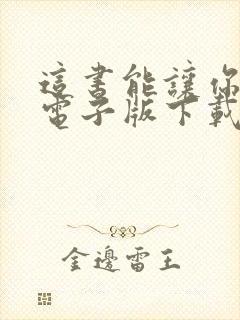 這書能讓你
電子版下載
金邊雷王